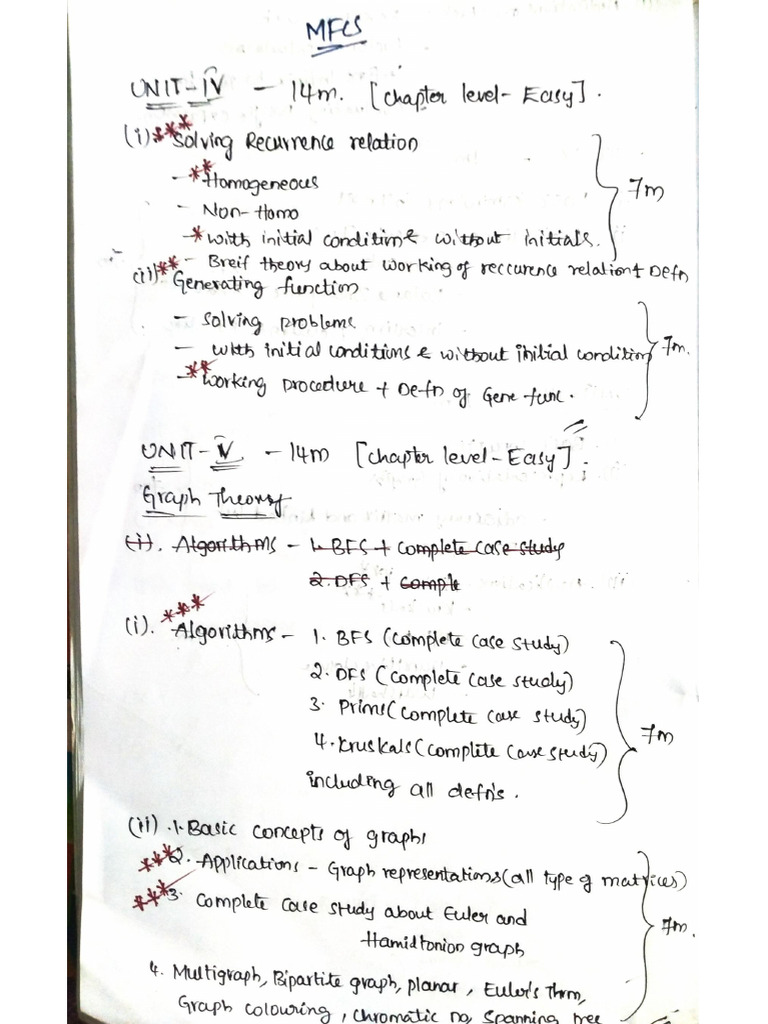 MFCS
UNIT-IV - 14m. [chapter level- Easy].
(i) *** Solving Recurrence relation
- ** Homogeneous
- Non-Homo
- * with initial condition & without initials.
- Breif theory about working of reccurence relation + Defn
} 7m
(ii) ** Generating function
- Solving problems
- with initial conditions & without initial condition
- ** Working procedure + Defn of Gene func.
} 7m.
UNIT-V - 14m [chapter level-Easy].
Graph Theory
(i). Algorithms - 1. BFS + complete case study
2. DFS + comple
(i). *** Algorithms - 1. BFS (complete case study)
2. DFS (complete case study)
3. Prims (complete case study)
4. Kruskals (complete case study)
including all defn's.
} 7m
(ii) .1. Basic concepts of graphs
*** 2. Applications - Graph representations (all type of matrices)
*** 3. Complete case study about Euler and
Hamiltonion graph
4. Multigraph, Bipartite graph, planar, Euler's Thrm,
Graph colouring, chromatic no, Spanning tree
} 7m.